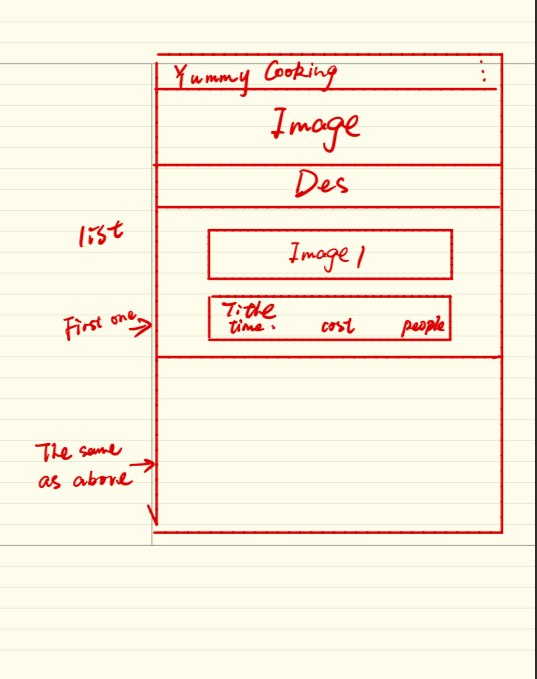 Yummy Cooking
Image
Des
list
Image 1
First one
Tithe
time.
cost
people
The same
as above